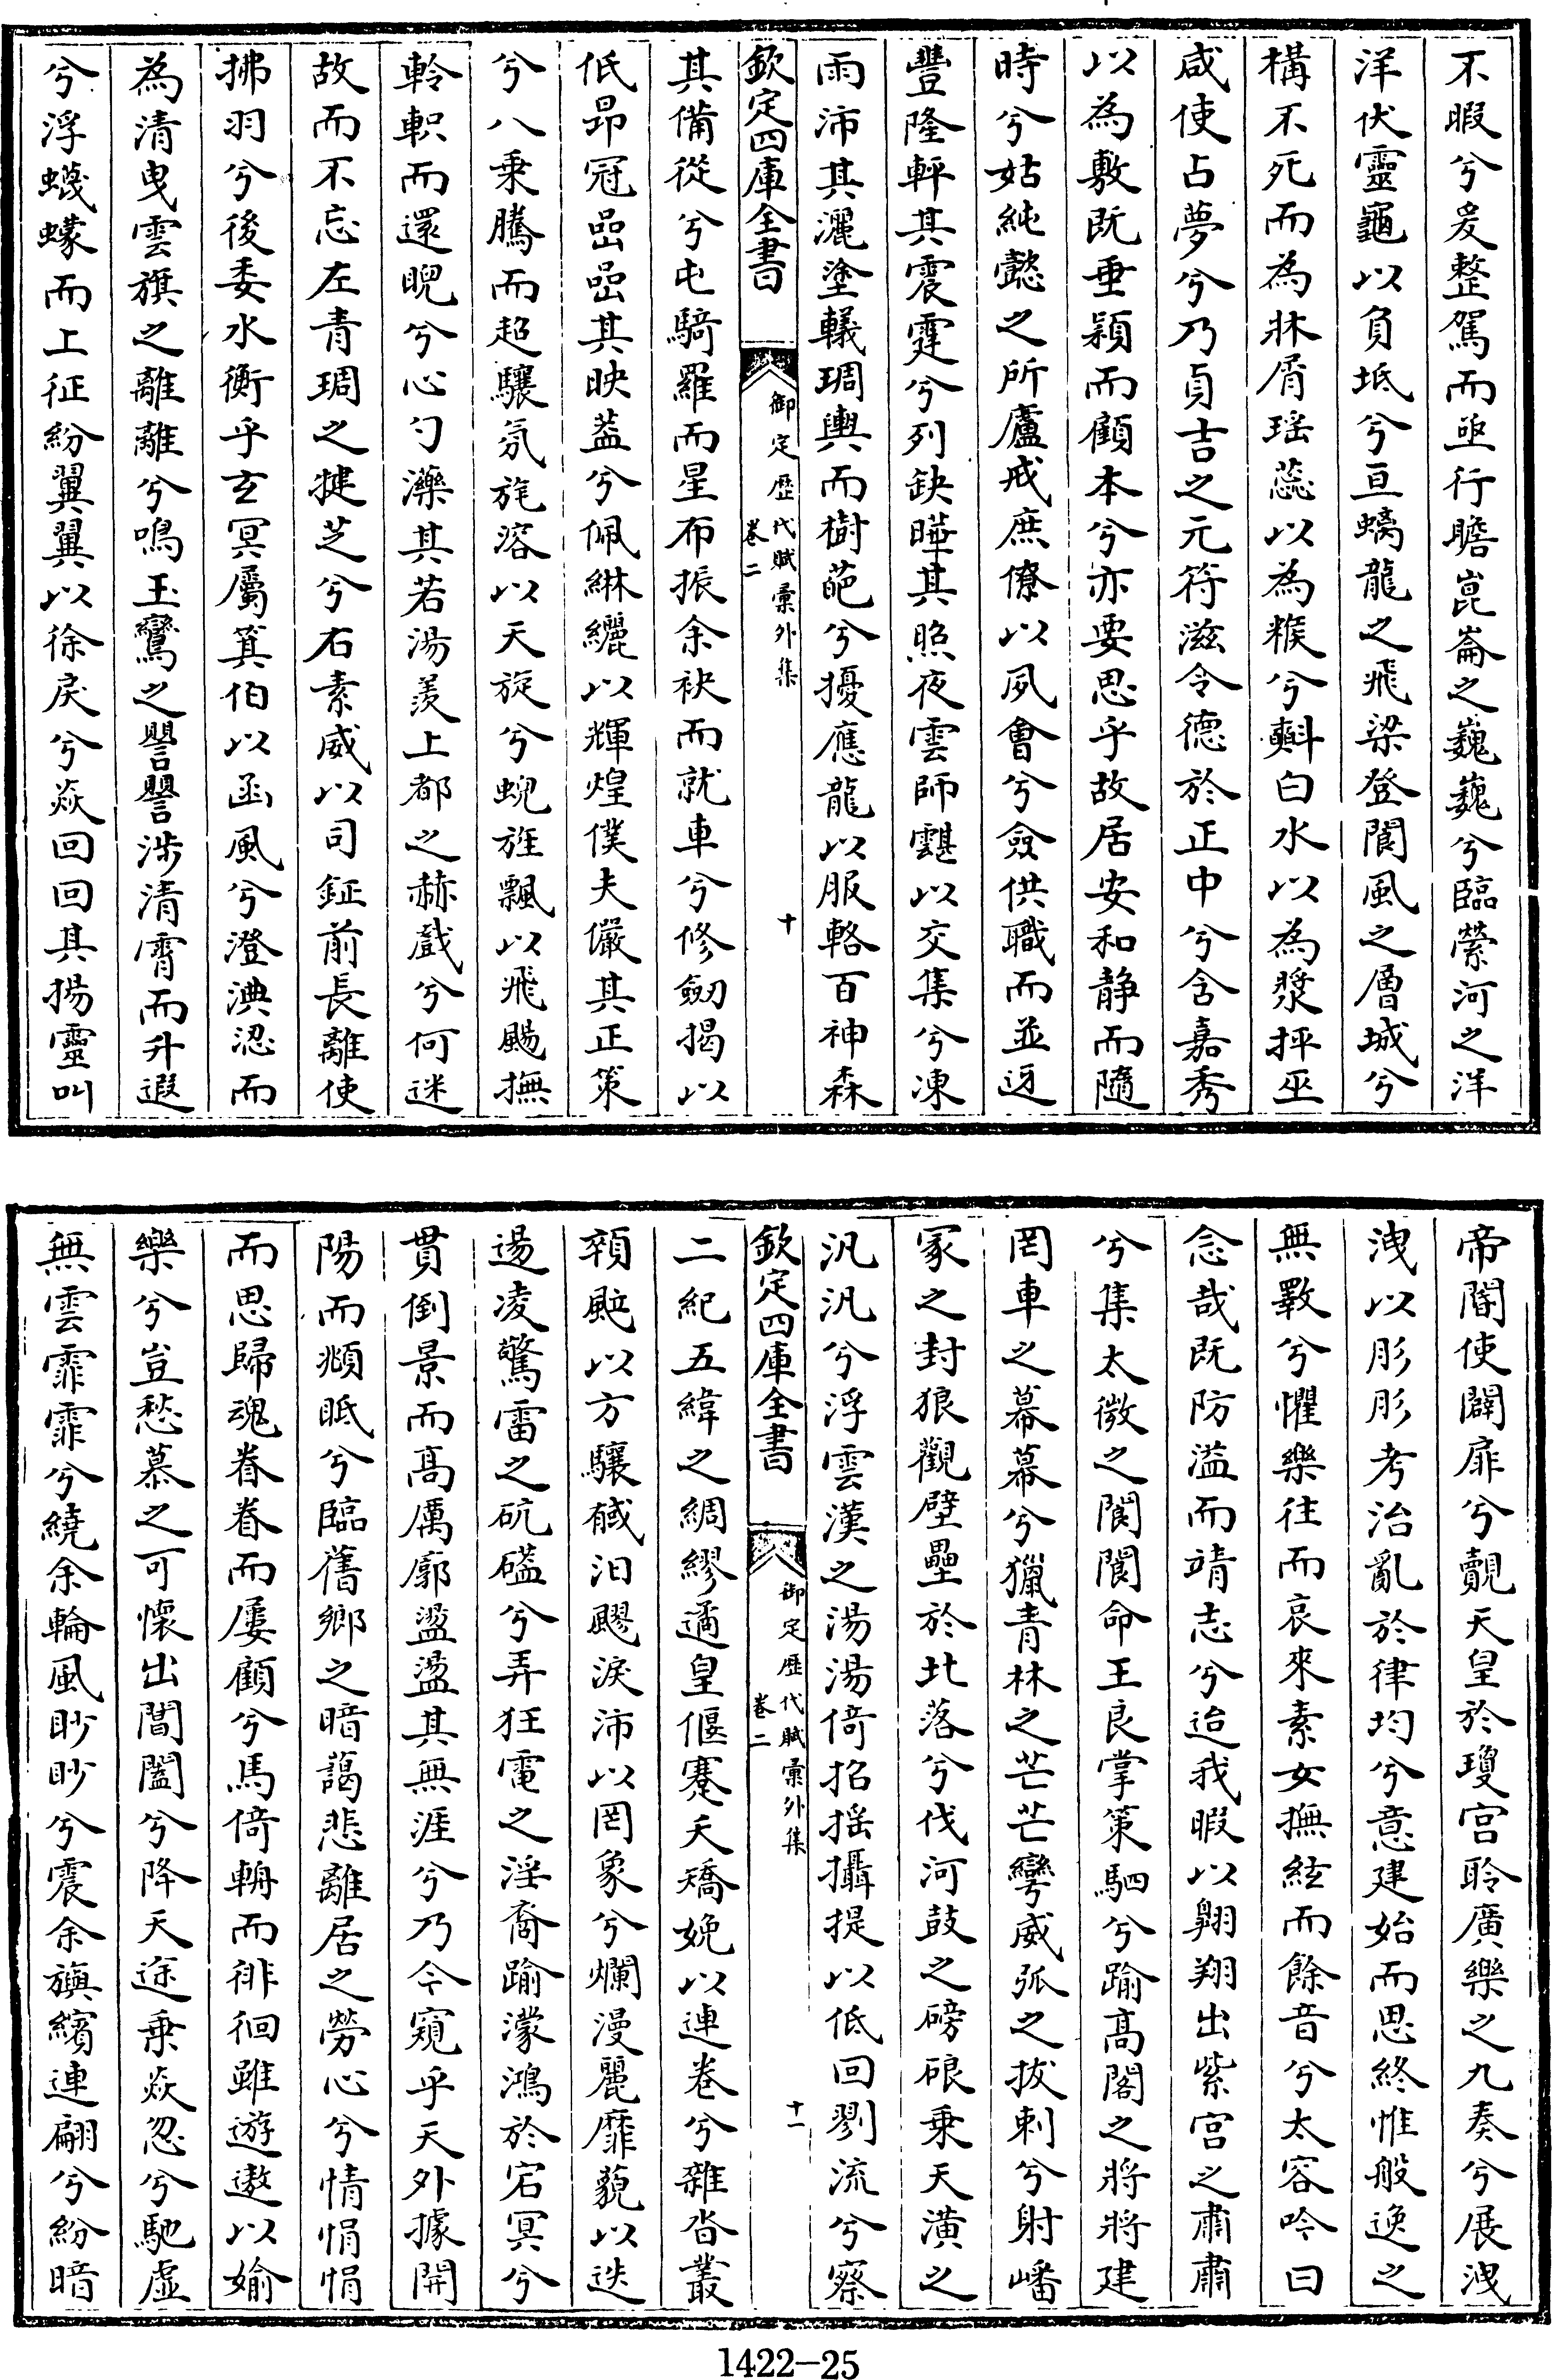 不暇兮爰整駕而亟行瞻崑崙之巍巍兮臨縈河之洋
洋伏靈龜以負坻兮亘螭龍之飛梁登閬風之層城兮
構不死而為牀屑瑶蕊以為糇兮㪺白水以為漿抨巫
咸使占夢兮乃貞吉之元符滋令德於正中兮含嘉秀
以為敷既垂穎而顧本兮亦要思乎故居安和静而隨
時兮姑純懿之所廬戒庶僚以夙會兮僉供職而並迓
豐隆軯其震霆兮列缺曄其照夜雲師䨴以交集兮凍
雨沛其灑塗轙琱輿而樹葩兮擾應龍以服輅百神森
欽定四庫全書
御定歷代賦彙外集
卷二
十
其備從兮屯騎羅而星布振余袂而就車兮修劒揭以
低昂冠嵒嵒其映葢兮佩綝纚以輝煌僕夫儼其正策
兮八乗騰而超驤氛旄溶以天旋兮蜺旌飄以飛颺撫
軨軹而還睨兮心勺㶋其若湯羨上都之赫戲兮何迷
故而不忘左青琱之揵芝兮右素威以司鉦前長離使
拂羽兮後委水衡乎玄冥屬箕伯以函風兮澄淟涊而
為清曳雲旗之離離兮鳴玉鸞之譻譻涉清霄而升遐
兮浮蠛蠓而上征紛翼翼以徐戾兮焱回回其揚靈叫
帝閽使闢扉兮覿天皇於瓊宫聆廣樂之九奏兮展洩
洩以肜肜考治亂於律均兮意建始而思終惟般逸之
無斁兮懼樂往而哀來素女撫絃而餘音兮太容吟曰
念哉既防溢而靖志兮迨我暇以翱翔出紫宫之肅肅
兮集太微之閬閬命王良掌策駟兮踰高閣之將將建
罔車之幕幕兮獵青林之芒芒彎威弧之拔剌兮射嶓
冢之封狼觀壁壘於北落兮伐河鼓之磅硠乗天潢之
汎汎兮浮雲漢之湯湯倚招摇攝提以低回剹流兮察
欽定四庫全書
御定歷代賦彙外集
卷二
十一
二紀五緯之綢繆遹皇偃蹇夭矯娩以連卷兮雜沓叢
顇颭以方驤戫汩飂淚沛以罔象兮爛漫麗靡藐以迭
逿凌驚雷之砊礚兮弄狂電之淫裔踰濛鴻於宕冥兮
貫倒景而髙厲廓盪盪其無涯兮乃今窺乎天外據開
陽而頫眡兮臨舊鄉之暗藹悲離居之勞心兮情悁悁
而思歸魂眷眷而屢顧兮馬倚輈而徘徊雖遊遨以媮
樂兮豈愁慕之可懷出閶闔兮降天途乗焱忽兮馳虛
無雲霏霏兮繞余輪風眇眇兮震余旟繽連翩兮紛暗
1422—25